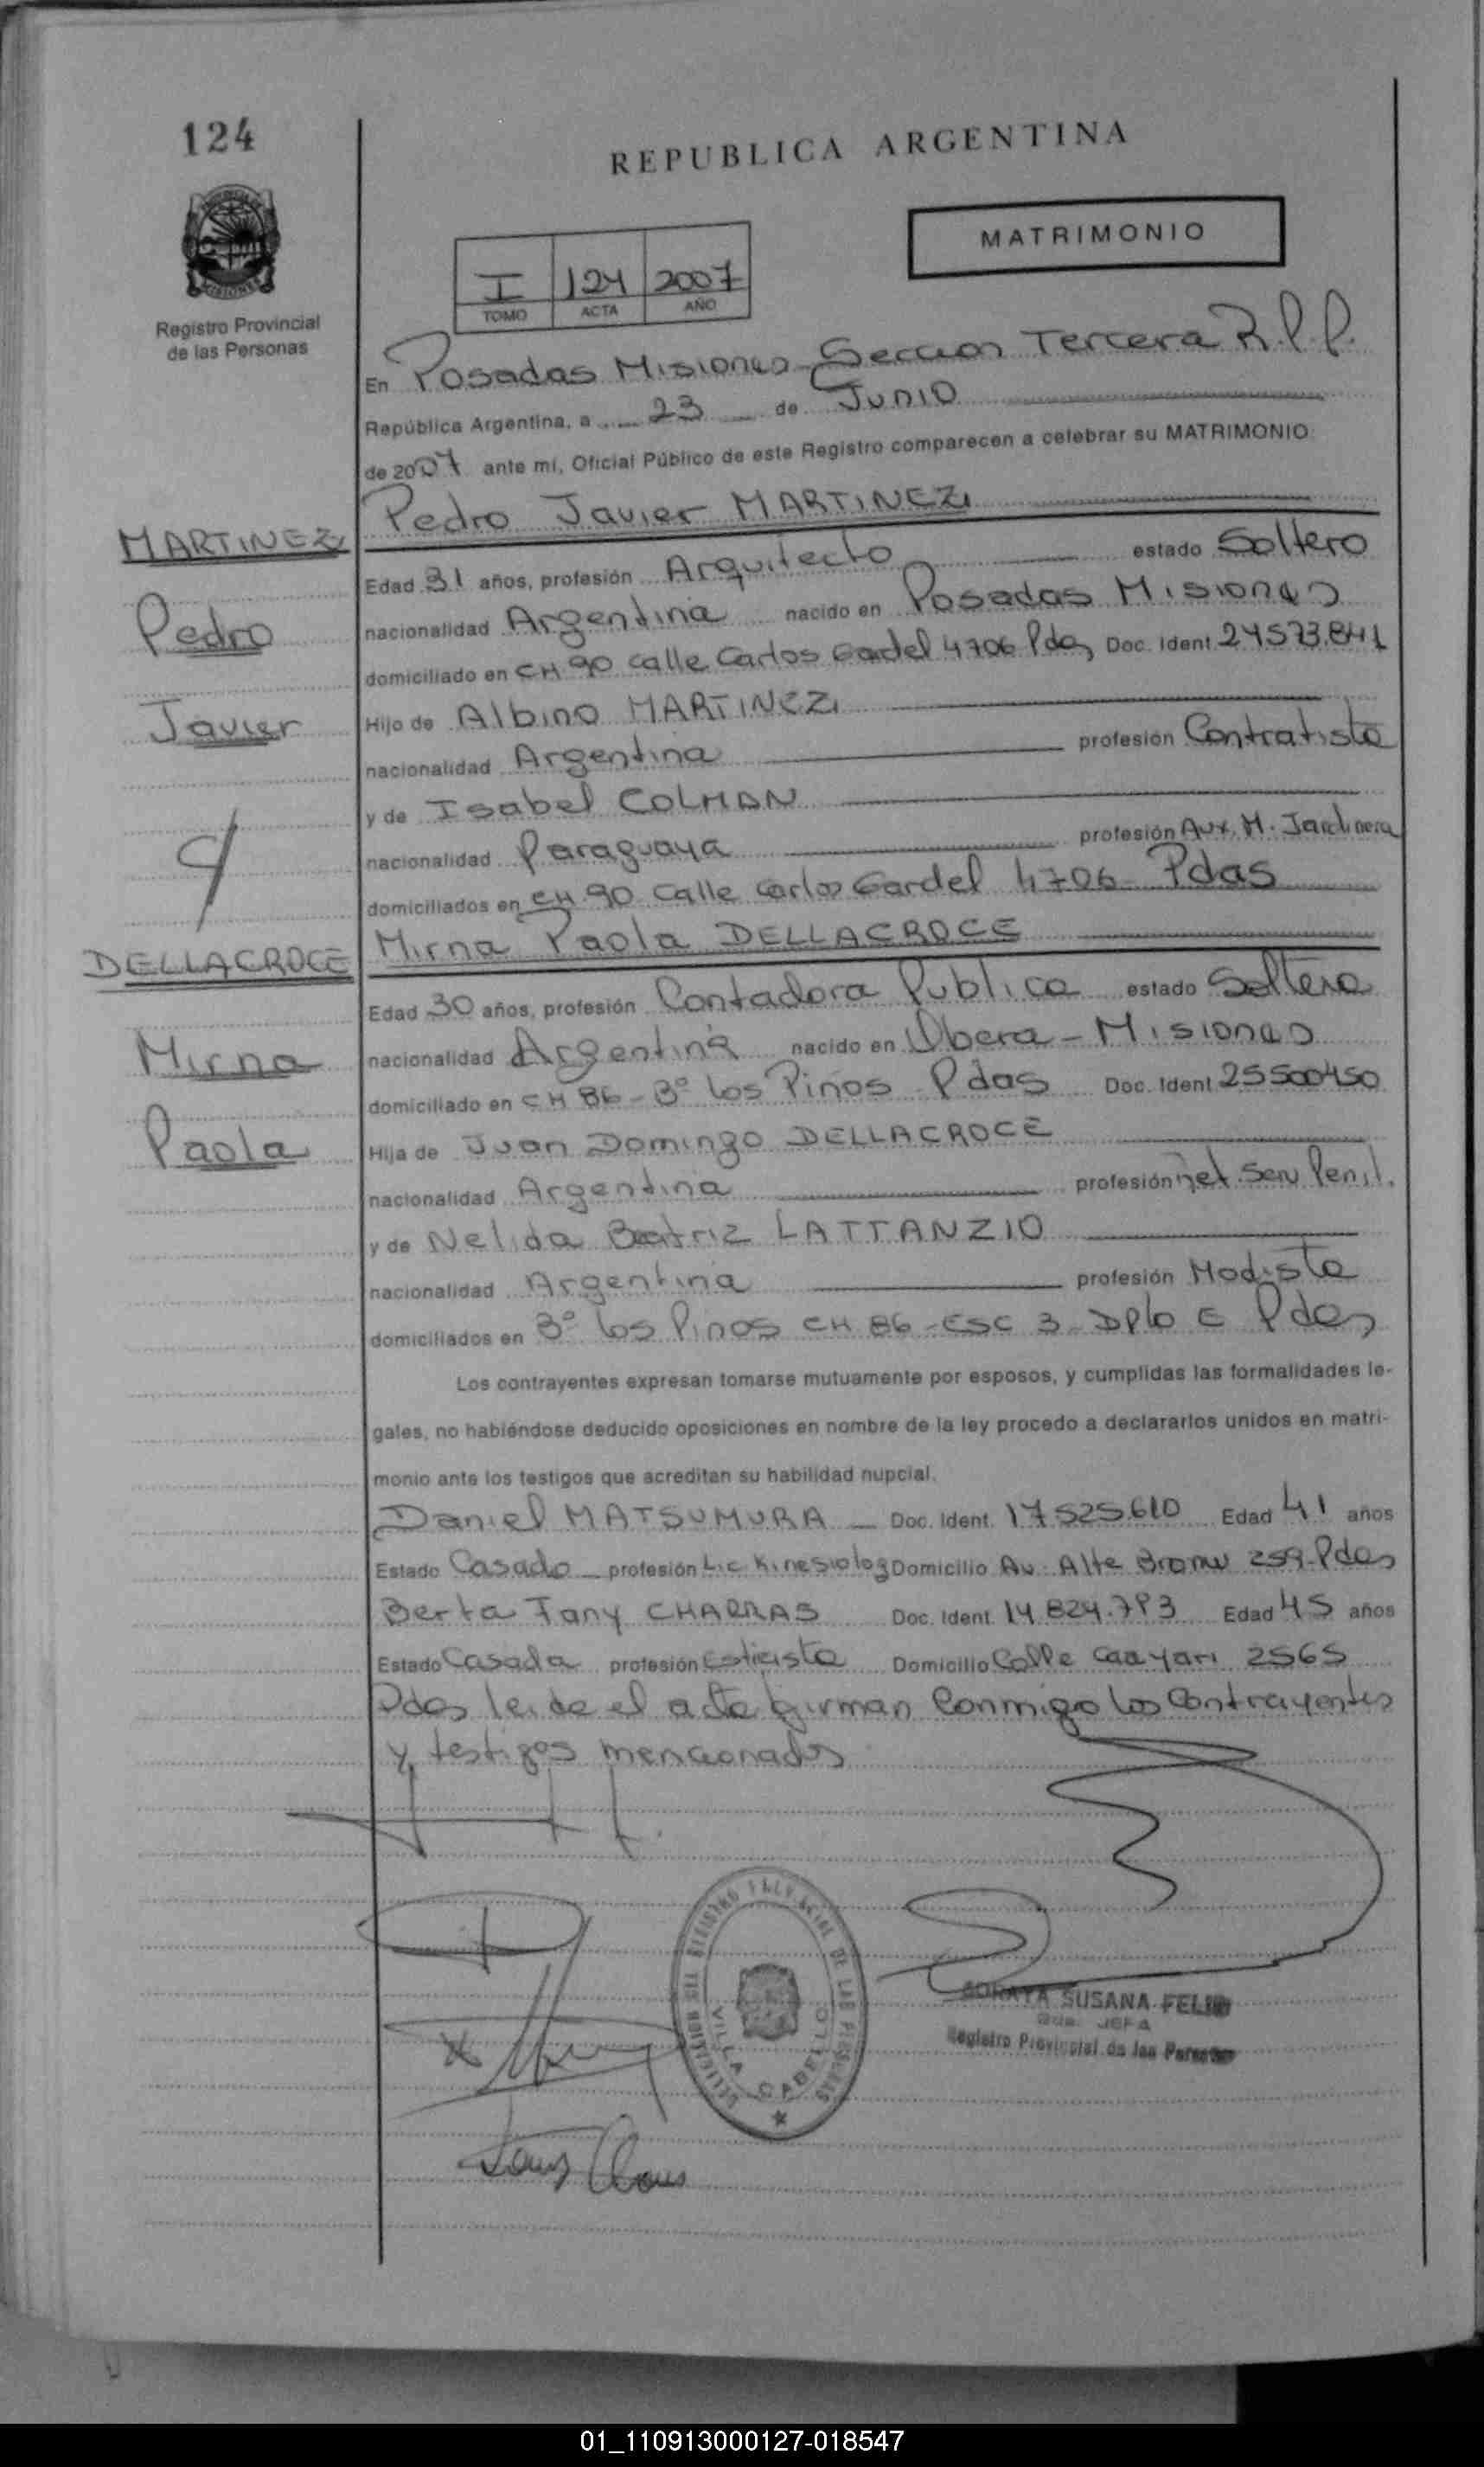 124
REPUBLICA ARGENTINA
MATRIMONIO
I 124 2007
TOMO ACTA AÑO
Registro Provincial
de las Personas
En Posadas Misiones Seccion Tercera R.P.P.
República Argentina, a 23 de Junio
de 2007 ante mí, Oficial Público de este Registro comparecen a celebrar su MATRIMONIO:
Pedro Javier MARTINEZ
MARTINEZ
Edad 31 años, profesión Arquitecto estado Soltero
Pedro
nacionalidad Argentina nacido en Posadas Misiones
domiciliado en CH 90 calle Carlos Gardel 4706 Pdas Doc. Ident. 24573.841
Javier
Hijo de Albino MARTINEZ
nacionalidad Argentina profesión Contratista
y de Isabel COLMAN
y
nacionalidad Paraguaya profesión Aux. M. Jardinera
domiciliados en CH 90 Calle Carlos Gardel 4706 Pdas
Mirna Paola DELLACROCE
DELLACROCE
Edad 30 años, profesión Contadora Publica estado Soltera
Mirna
nacionalidad Argentina nacido en Obera - Misiones
domiciliado en CH 86 - Bº los Pinos Pdas Doc. Ident. 25500450
Paola
Hija de Juan Domingo DELLACROCE
nacionalidad Argentina profesión Ret. Serv Penit.
y de Nelida Beatriz LATTANZIO
nacionalidad Argentina profesión Modista
domiciliados en Bº los Pinos CH 86 - ESC 3 - Dpto E Pdas
Los contrayentes expresan tomarse mutuamente por esposos, y cumplidas las formalidades le-
gales, no habiéndose deducido oposiciones en nombre de la ley procedo a declararlos unidos en matri-
monio ante los testigos que acreditan su habilidad nupcial.
Daniel MATSUMURA Doc. Ident. 17525610 Edad 41 años
Estado Casado profesión Lic. Kinesiolog Domicilio Av. Alte Brown 259 - Pdas
Berta Fany CHARRAS Doc. Ident. 14.824.793 Edad 45 años
Estado Casada profesión Esticista Domicilio Calle Caayari 2565
Pdas leida el acta firman Conmigo los Contrayentes
y testigos mencionados
DELEGACION DEL REGISTRO PROVINCIAL DE LAS PERSONAS
VILLA CABELLO
SORAYA SUSANA FELIP
JEFA
Registro Provincial de las Personas
01_110913000127-018547